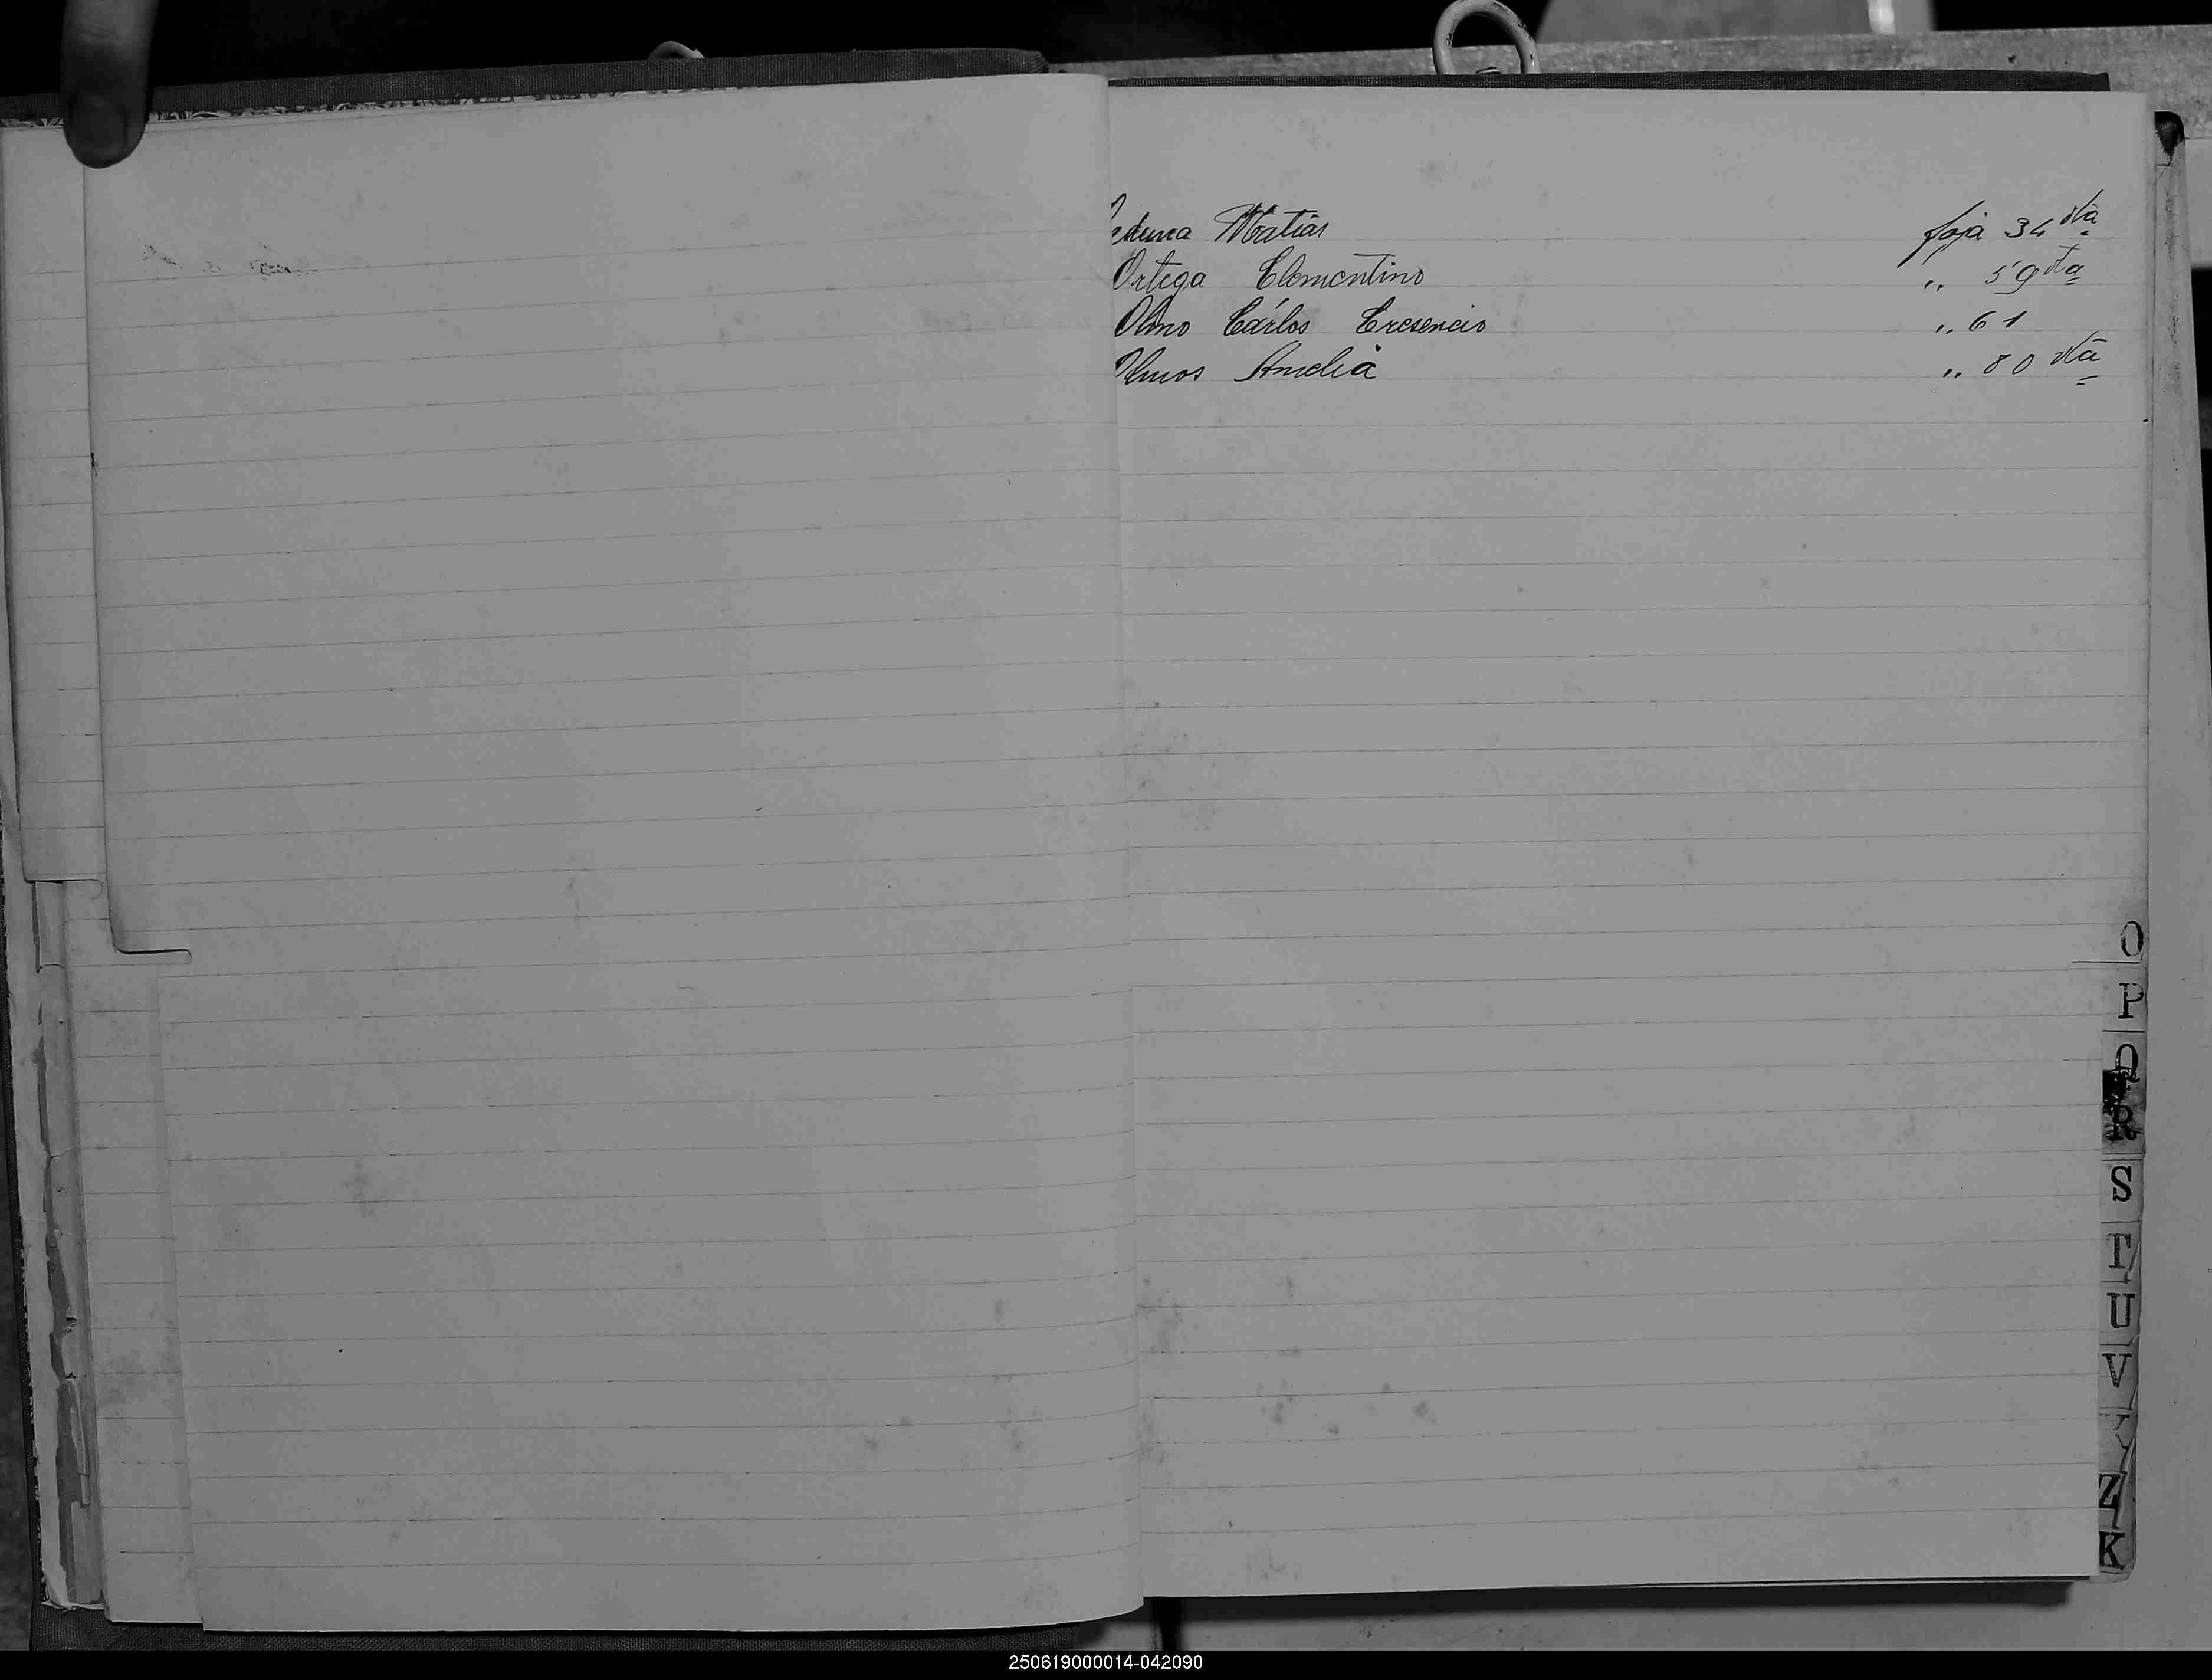 Matias foja 34 vta
Ortega Clementino „ 59 vta
Olmo Cárlos Cresencio „ 61
Olmos Amelia „ 80 vta
O
P
Q
R
S
T
U
V
Y
Z
K
250619000014-042090